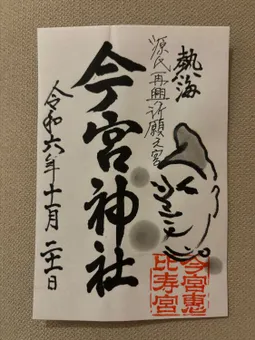 熱海
源氏再興祈願之宮
今宮神社
令和六年十一月二十一日
今宮惠
比寿宮